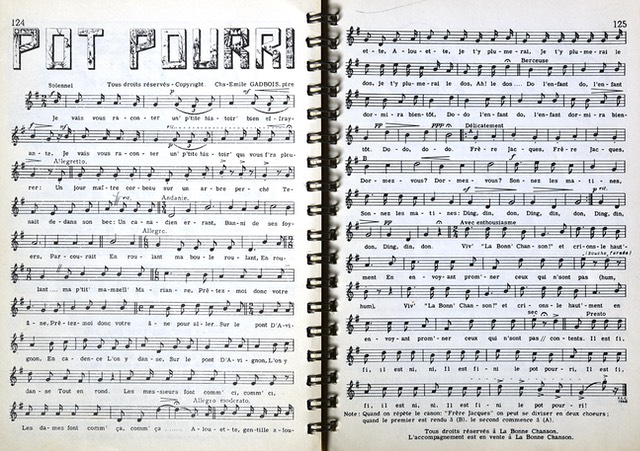 124
POT POURRI
Solennel Tous droits réservés - Copyright Chs-Emile GADBOIS, ptre
Je vais vous ra - con - ter un' p'tite his - toir' bien ef - fray -
an - te. Je vais vous ra - con - ter un' p'tite his - toir' qui vous f'ra pleu -
Allegretto
rer: Un jour maître cor - beau sur un ar - bre per - ché Te -
Andante
nait de - dans son bec: Un ca - na - dien er - rant, Ban - ni de ses foy -
Allegro
ers, Par - cou - rait En rou - lant ma bou - le rou - lant, En rou -
lant ... ma p'tit' ma - mzell' Ma - ria - ne, Prê - tez - moi donc votre
â - ne, Prê - tez - moi donc votre â - ne pour al - ler. Sur le pont D'A - vi -
gnon, En ca - den - ce L'on y dan - se, Sur le pont D'A - vi - gnon, L'on y
dan - se Tout en rond. Les mes - sieurs font comm' ci, comm' ci,
Allegro moderato
Les da - mes font comm' ça, comm' ça ...... A - lou - et - te, gen - tille a - lou -
125
et - te, A - lou - et - te, je t'y plu - me - rai, je t'y plu - me - rai le
Berceuse
dos, je t'y plu - me - rai le dos, Ah! le dos ... Do l'en - fant do, l'en - fant
dor - mi - ra bien - tôt, Do l'en - fant do, l'en - fant dor - mi - ra bien -
pp ppp Délicatement A
tôt. Do, do, do. Frè - re Jac - ques, Frè - re Jac - ques,
B
Dor - mez - vous? Dor - mez - vous? Son - nez les ma - ti - nes,
Son - nez les ma - ti - nes: Ding, din, don, Ding, din, don, Ding, din,
pp ff Avec enthousiasme
don, Ding, din, don. Viv' "La Bonn' Chan - son!" et cri - ons - le haut' -
(Bouche fermée)
ment En en - voy - ant prom' - ner ceux qui n'sont pas (hum,
hum), Viv' "La Bonn' Chan - son!" et cri - ons - le haut' - ment en
sec Presto
en - voy - ant prom' - ner ceux qui n'sont pas // con - tents. Il est fi,
fi, il est ni, ni. Il est fi - ni le pot pour - ri! Il est
fi, il est ni, ni. Il est fi - ni le pot pour - ri!
Note: Quand on répète le canon: "Frère Jacques" on peut se diviser en deux choeurs;
quand le premier est rendu à (B), le second commence à (A).
Tous droits réservés à La Bonne Chanson.
L'accompagnement est en vente à La Bonne Chanson.